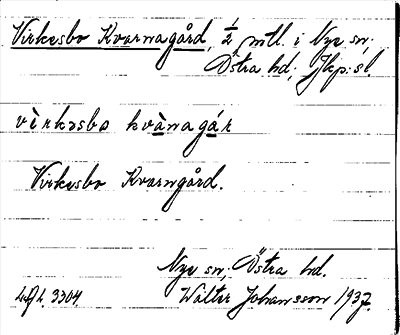 Virkesbo Kvarnagård, 1/2 mtl. i Nye sn;
Östra hd; Jkp:s l.
vìrkəsbo kvànagá̱r
Virkesbo Kvarngård.
Nye sn; Östra hd.
Walter Johansson 1937.